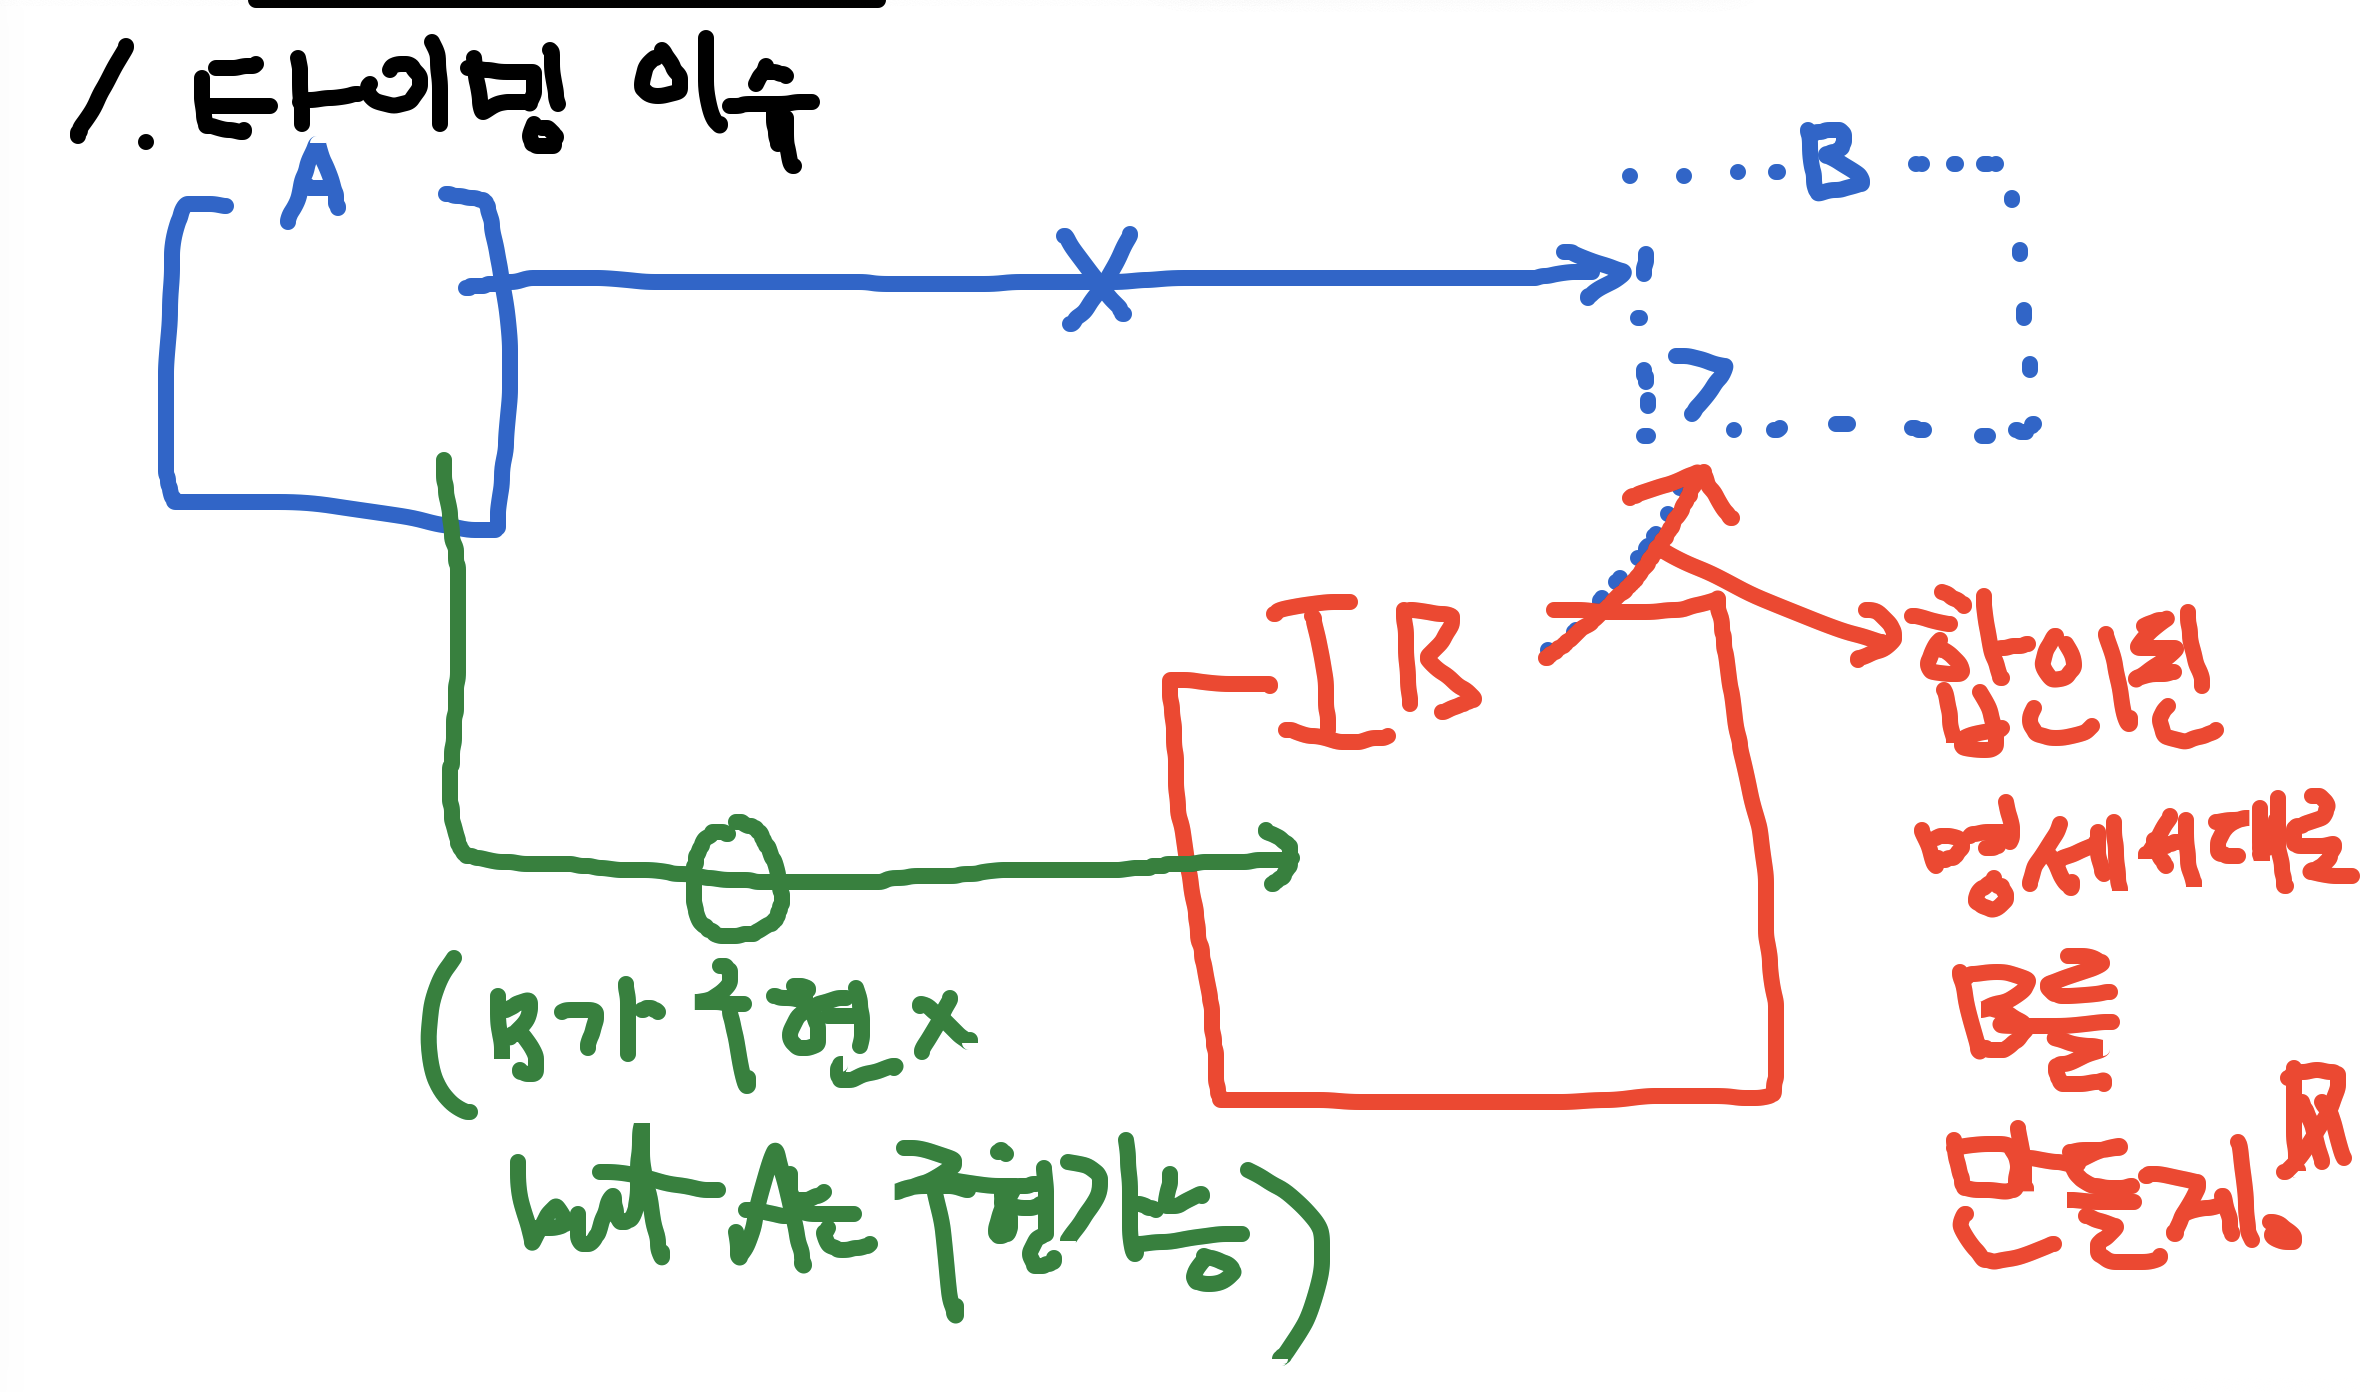 1. 타이밍 이슈
A
B
IB
합의된
명세서대로
B를
만들자!
(B가 구현 X
but A는 구현가능)